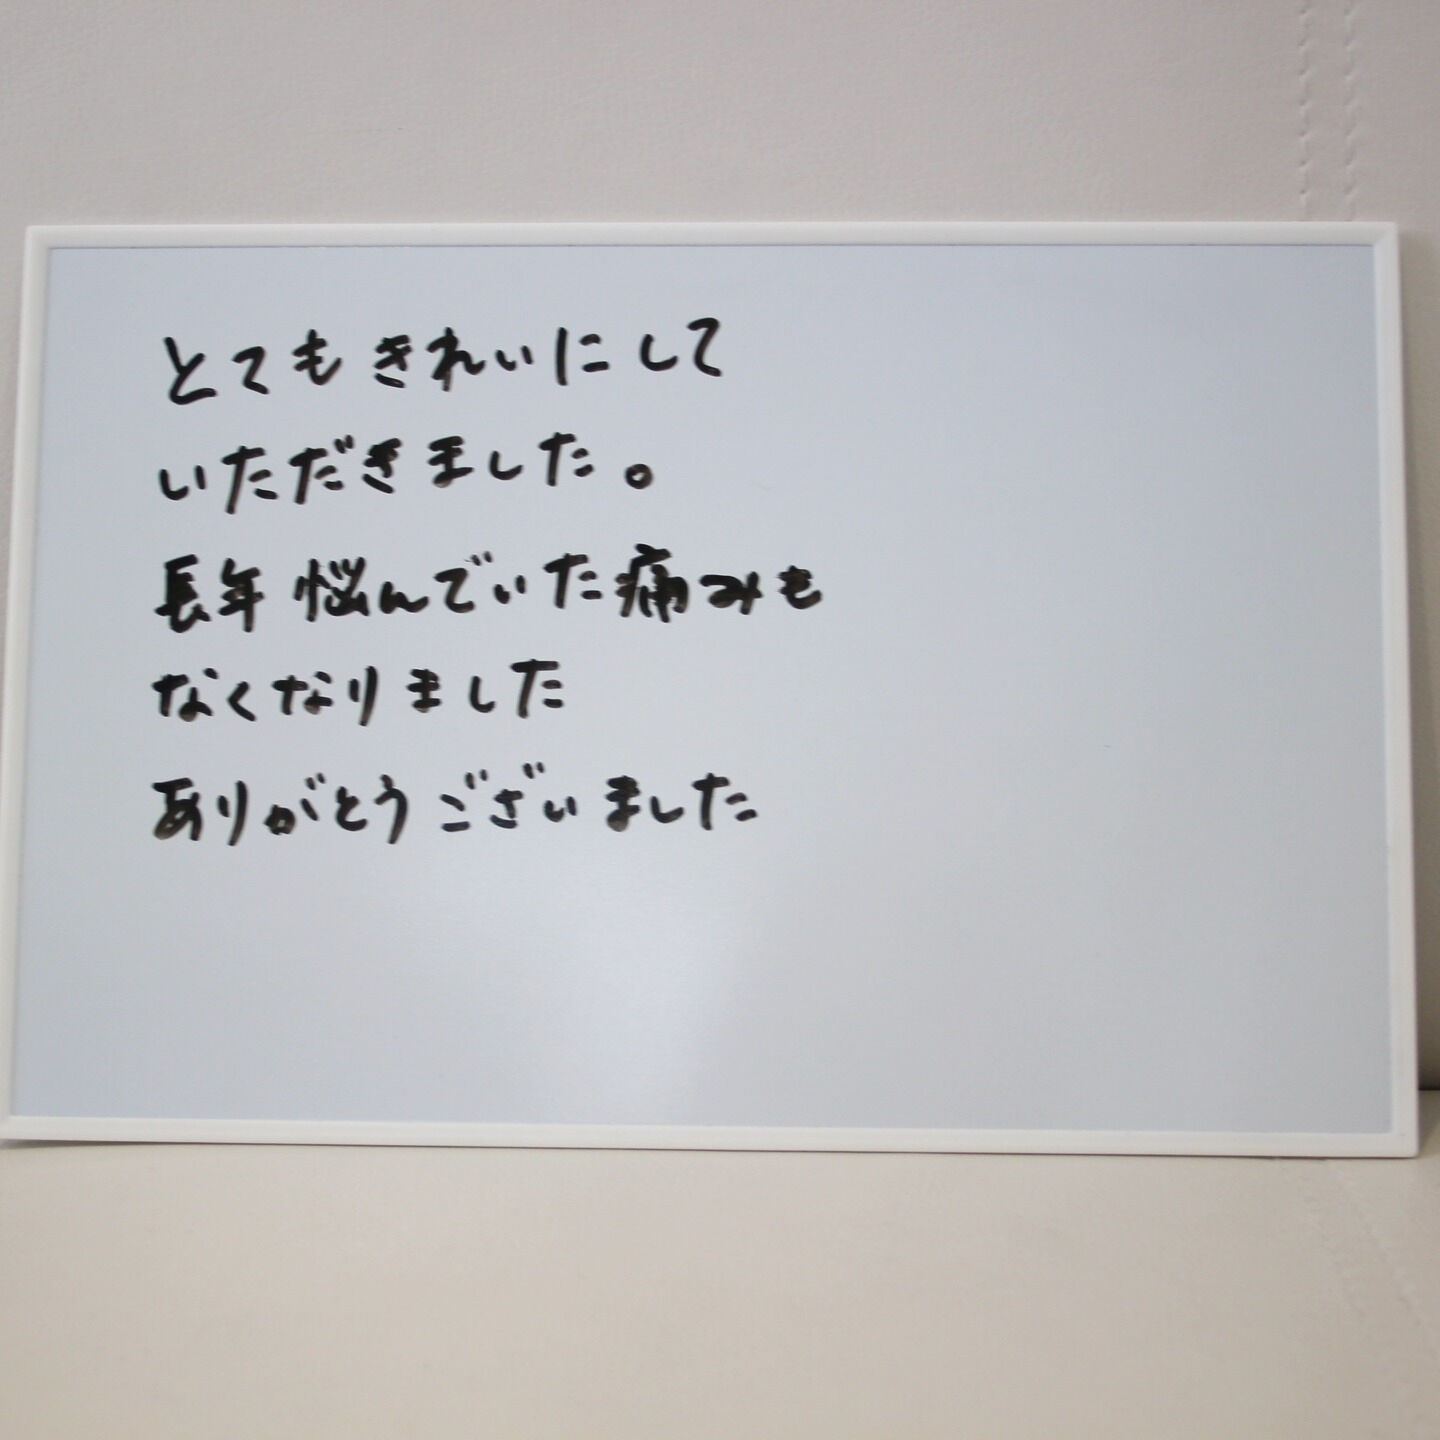 とてもきれいにして
いただきました。
長年悩んでいた痛みも
なくなりました
ありがとうございました